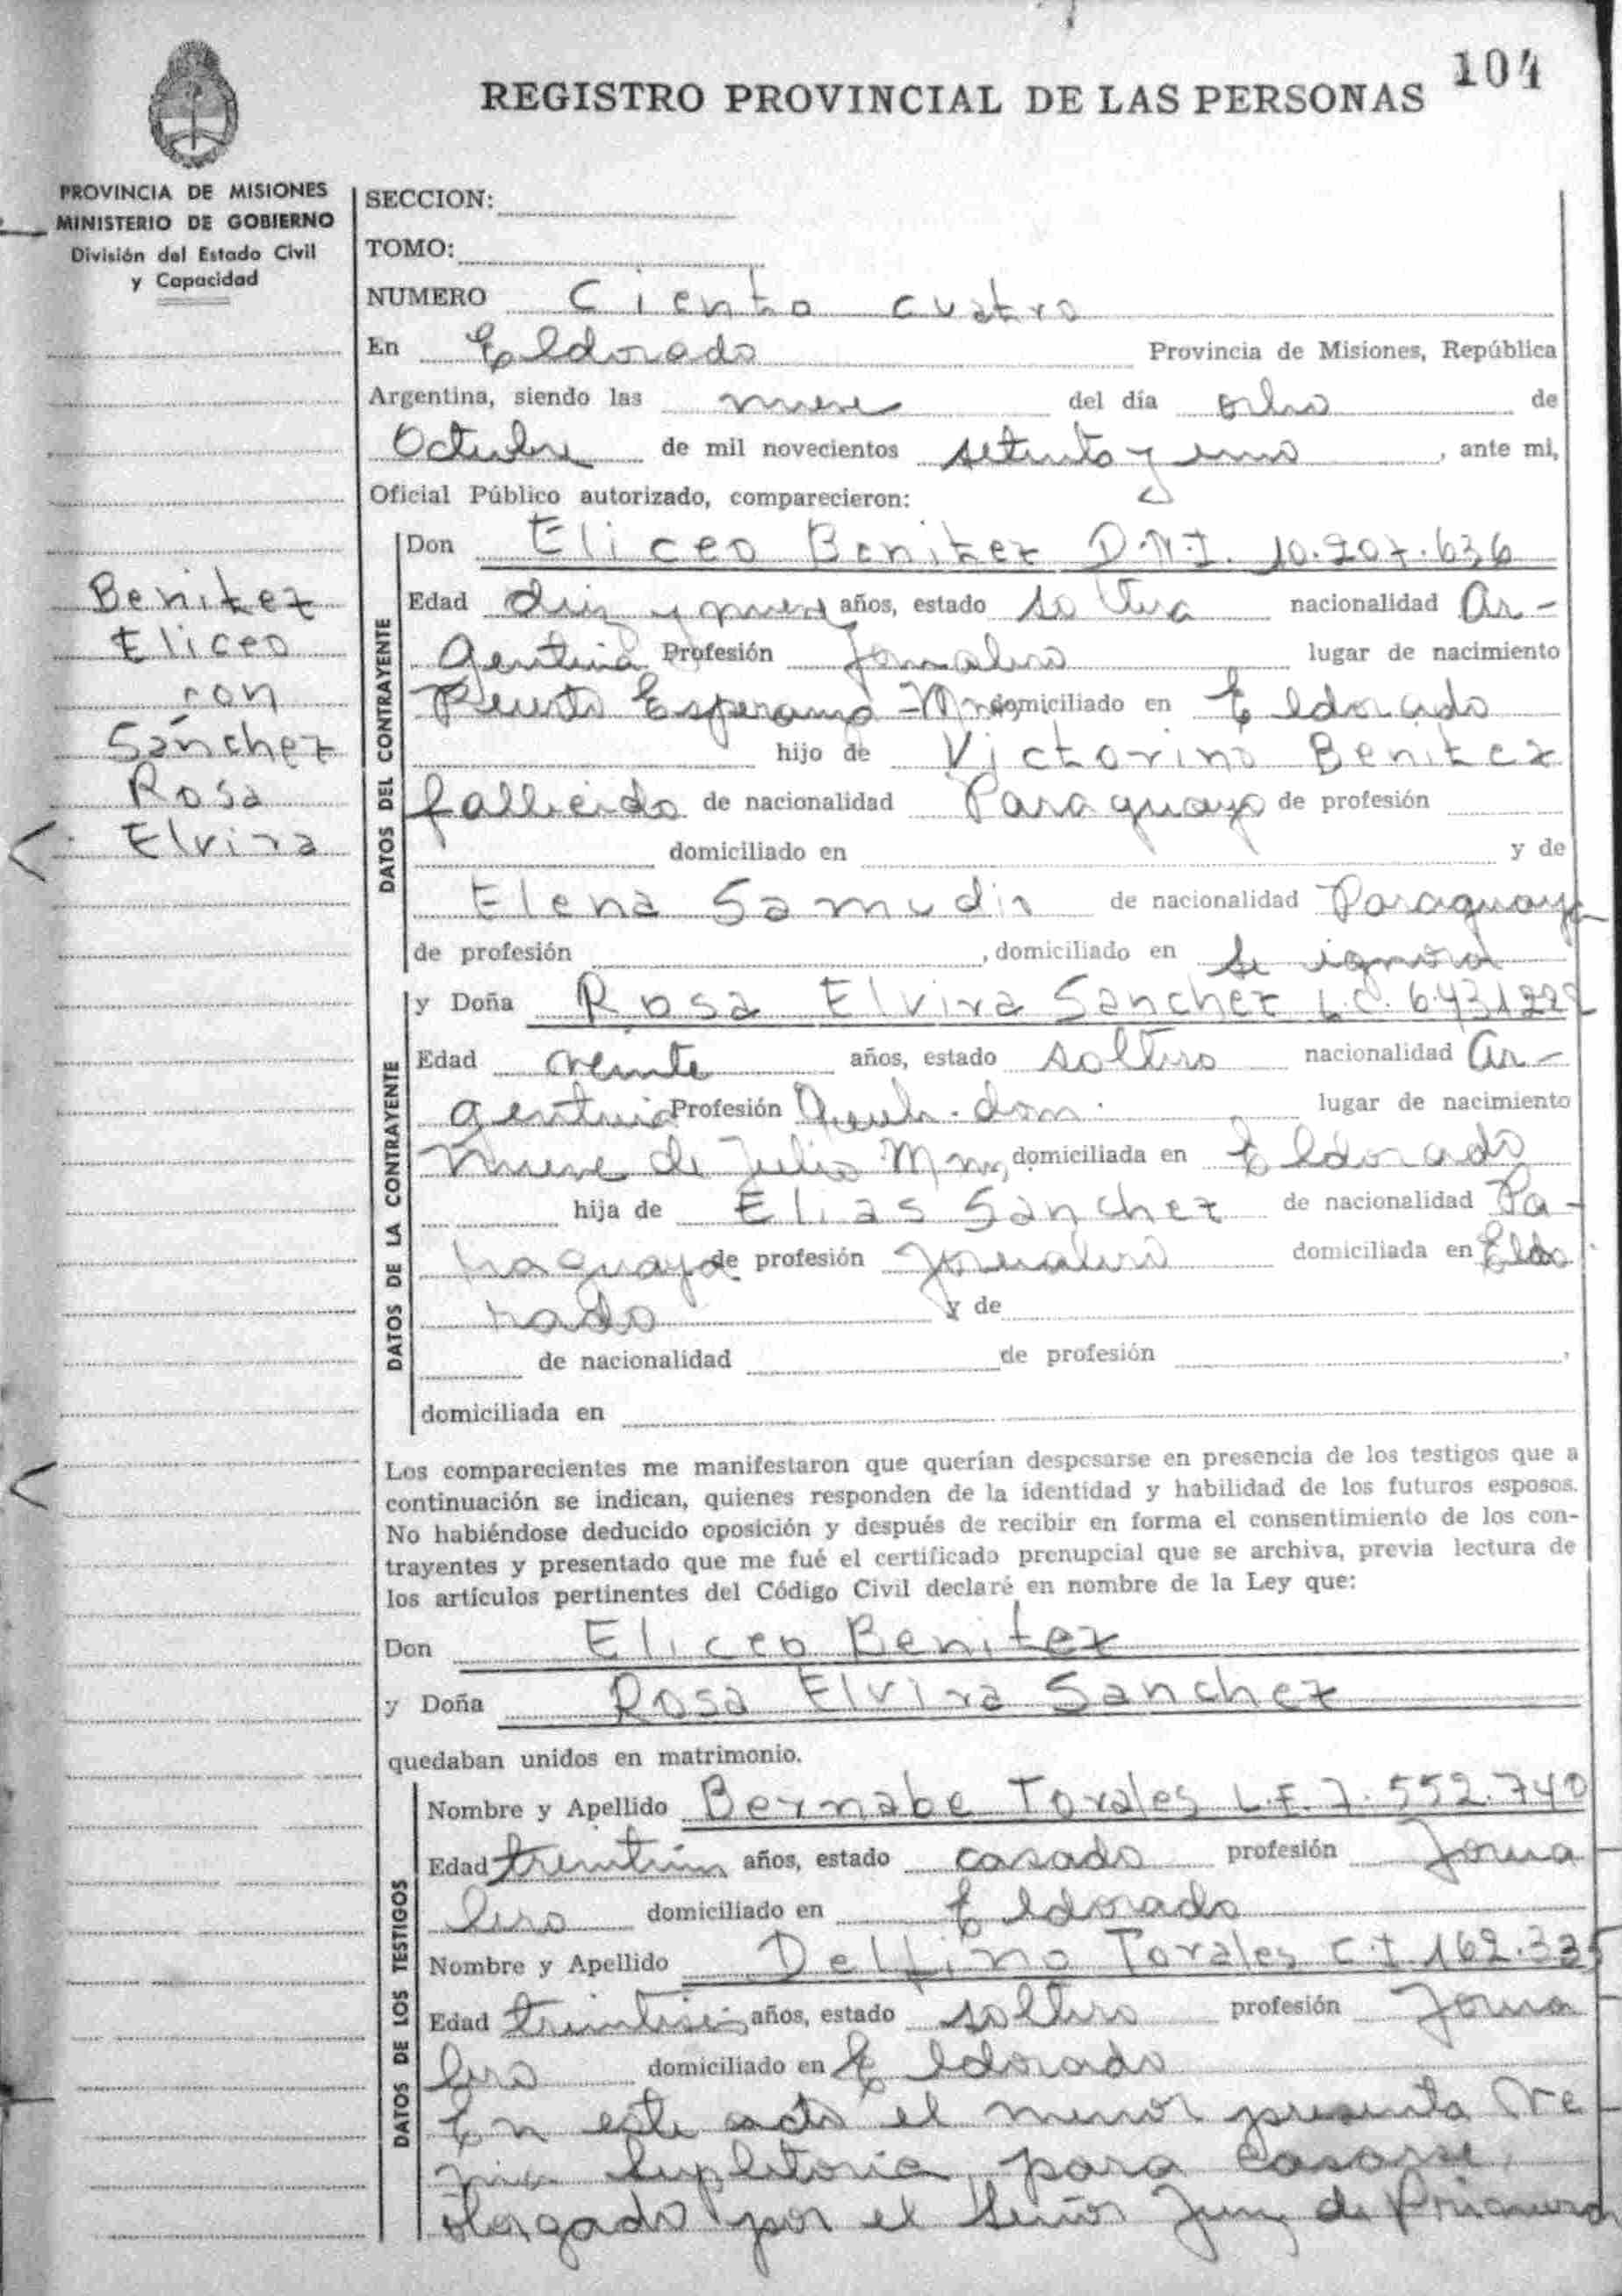 104
REGISTRO PROVINCIAL DE LAS PERSONAS
PROVINCIA DE MISIONES
MINISTERIO DE GOBIERNO
División del Estado Civil
y Capacidad
Benitez
Eliceo
con
Sánchez
Rosa
Elvira
SECCION:
TOMO:
NUMERO Ciento cuatro
En Eldorado Provincia de Misiones, República
Argentina, siendo las nueve del día ocho de
Octubre de mil novecientos setenta y uno, ante mi,
Oficial Público autorizado, comparecieron:
DATOS DEL CONTRAYENTE
Don Eliceo Benitez D.N.I. 10.207.636
Edad diez y nueve años, estado soltero nacionalidad Ar-
gentina Profesión Jornalero lugar de nacimiento
Puerto Esperanza - Mnes, domiciliado en Eldorado
hijo de Victorino Benitez
fallecido de nacionalidad Paraguayo de profesión
domiciliado en y de
Elena Samudio de nacionalidad Paraguaya
de profesión , domiciliado en Se ignora
DATOS DE LA CONTRAYENTE
y Doña Rosa Elvira Sanchez L.C. 6.431222
Edad veinte años, estado soltera nacionalidad Ar-
gentina Profesión Queh. dom. lugar de nacimiento
Nueve de Julio Mnes, domiciliada en Eldorado
hija de Elias Sanchez de nacionalidad Pa-
raguaya de profesión Jornalero domiciliada en Eldo
rado y de
de nacionalidad de profesión ,
domiciliada en
Los comparecientes me manifestaron que querían desposarse en presencia de los testigos que a
continuación se indican, quienes responden de la identidad y habilidad de los futuros esposos.
No habiéndose deducido oposición y después de recibir en forma el consentimiento de los con-
trayentes y presentado que me fué el certificado prenupcial que se archiva, previa lectura de
los artículos pertinentes del Código Civil declaré en nombre de la Ley que:
Don Eliceo Benitez
y Doña Rosa Elvira Sanchez
quedaban unidos en matrimonio.
DATOS DE LOS TESTIGOS
Nombre y Apellido Bernabe Torales L.E. 7.552.740
Edad años, estado casado profesión Jorna
lero domiciliado en Eldorado
Nombre y Apellido Delfino Torales C.I 162.335
Edad treintiseis años, estado soltero profesión Jorna
lero domiciliado en Eldorado
En este acto el menor presenta Ve
nia Supletoria para casarse,
otorgado por el Señor Juez de Primera